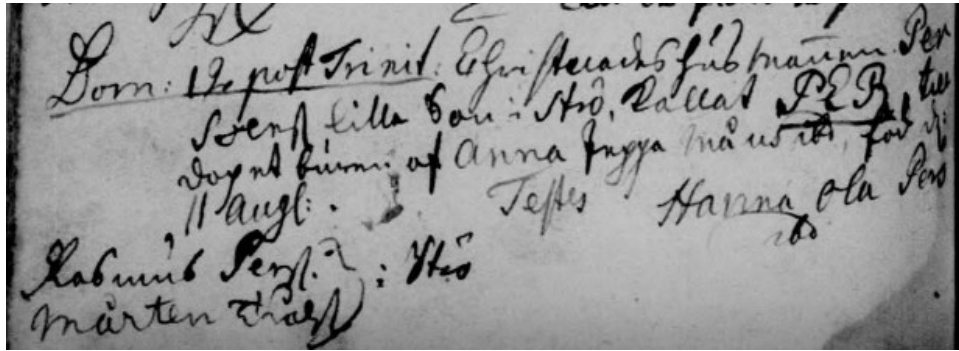 Dom: 12 post Trinit: Christnades husmannen Per
Svenss lilla Son i Strö, kallat PER, till
dopet buren af Anna Jeppa Måns ibd, föd d:
11 Aug:
Testes Hanna Ola Pers
ibd
Rasmus Perss.
Mårten Trulss } i Strö